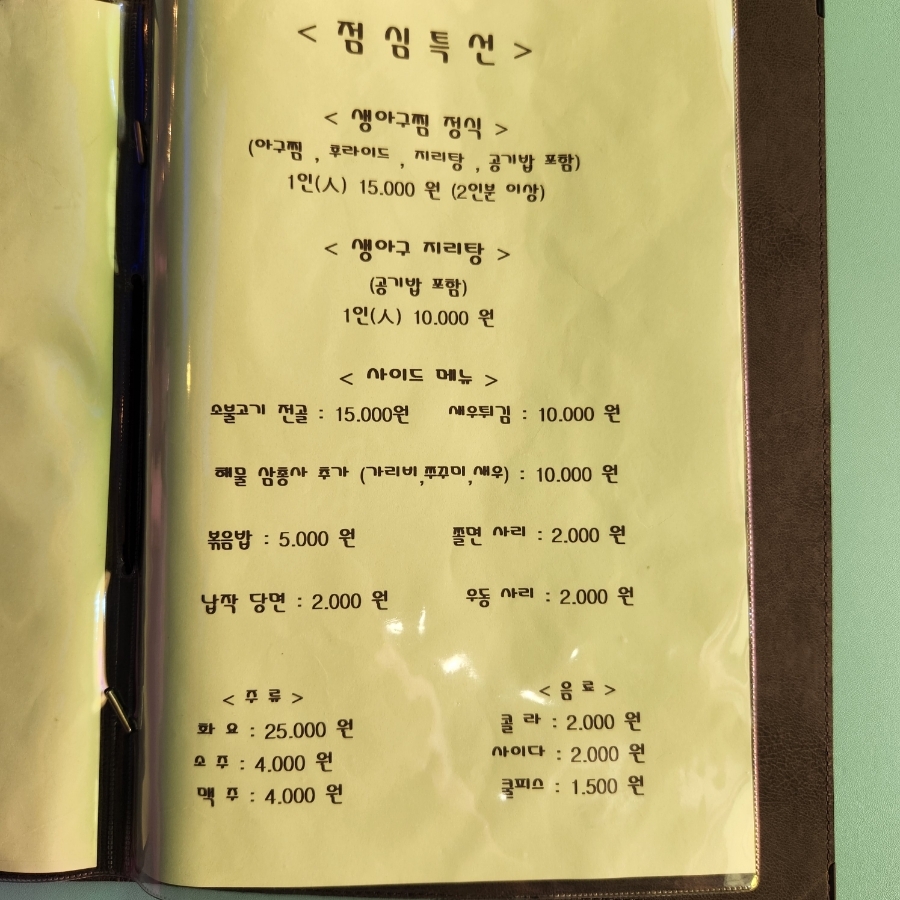 < 점 심 특 선 >
< 생아구찜 정식 >
(아구찜 , 후라이드 , 지리탕 , 공기밥 포함)
1인(人) 15.000 원 (2인분 이상)
< 생아구 지리탕 >
(공기밥 포함)
1인(人) 10.000 원
< 사이드 메뉴 >
소불고기 전골 : 15.000원 새우튀김 : 10.000 원
해물 삼총사 추가 (가리비,쭈꾸미,새우) : 10.000 원
볶음밥 : 5.000 원 쫄면 사리 : 2.000 원
납작 당면 : 2.000 원 우동 사리 : 2.000 원
< 주 류 >
화 요 : 25.000 원
소 주 : 4.000 원
맥 주 : 4.000 원
< 음 료 >
콜 라 : 2.000 원
사이다 : 2.000 원
쿨피스 : 1.500 원